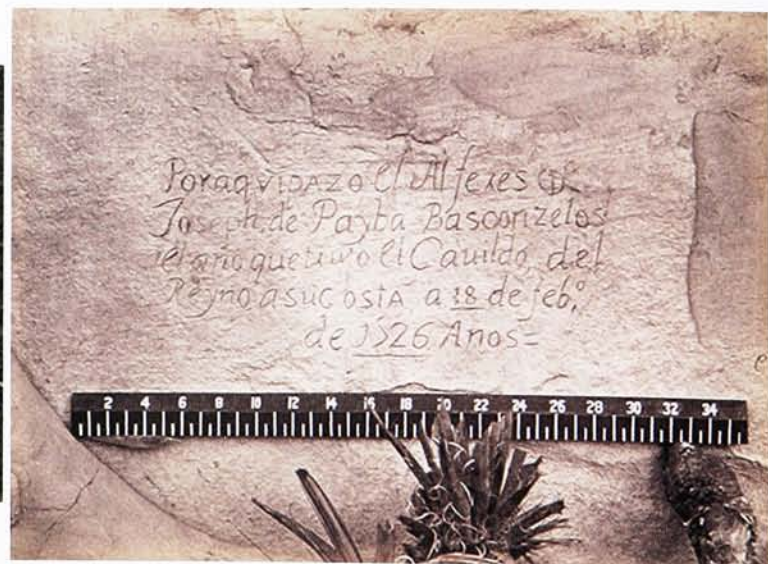 Por aq vi DAZO el Alferes Dⁿ
Joseph de Payba Basconzelos
el año que tuvo el Cauildo del
Reyno a su costa a 18 de feb.º
de 1526 Anos=
2 4 6 8 10 12 14 16 18 20 22 24 26 28 30 32 34